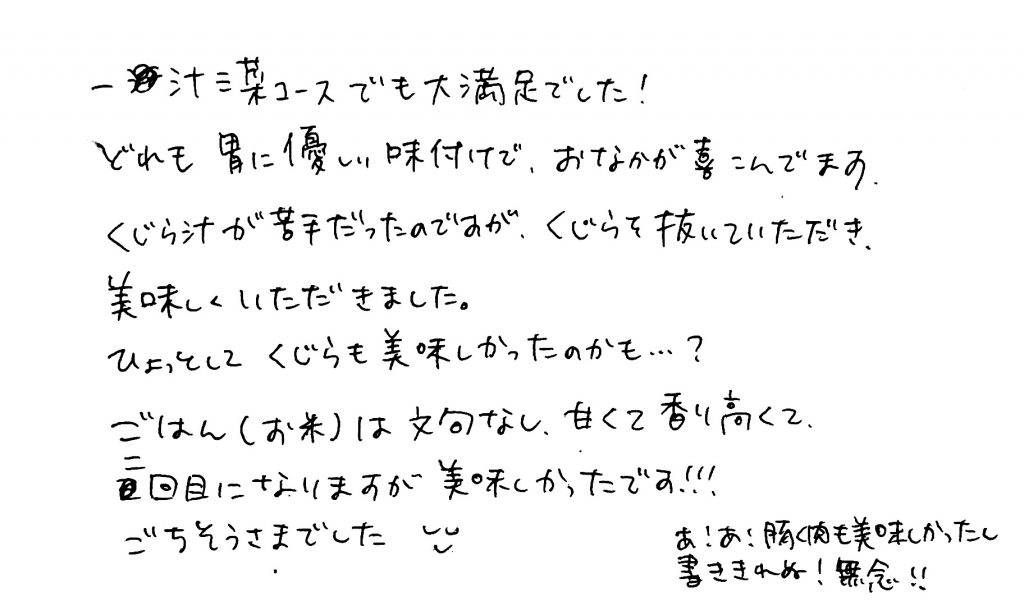 一汁三菜コースでも大満足でした!
どれも胃に優しい味付けで、おなかが喜こんでます.
くじら汁が苦手だったのですが、くじらを抜いていただき、
美味しくいただきました。
ひょっとして くじらも美味しかったのかも…?
ごはん(お米)は文句なし、甘くて香り高くて、
二回目になりますが美味しかったです!!!
ごちそうさまでした
あ!あ!豚く肉も美味しかったし
書ききれぬ!無念!!